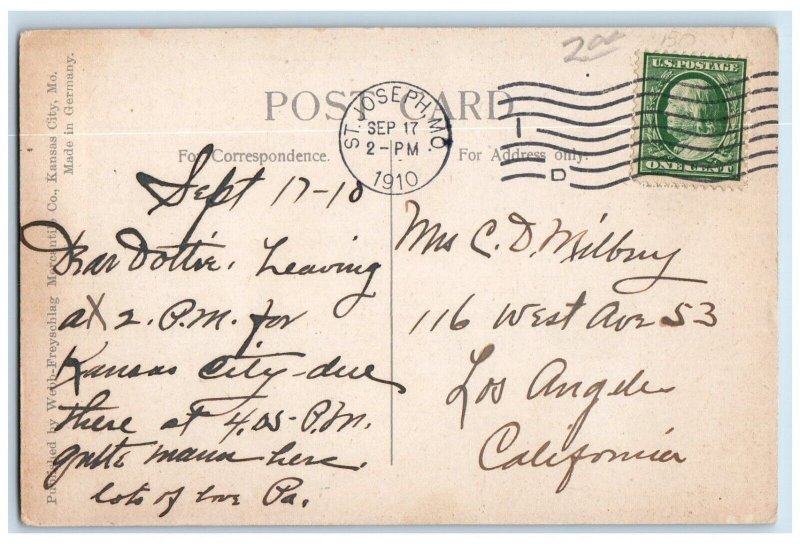 200
U.S. POSTAGE
ONE CENT
POST CARD
ST. JOSEPH, MO.
SEP 17
2-PM
1910
1
D
For Correspondence.
For Address only.
Sept 17-10
Dear Dottie. Leaving
at 2. P.M. for
Kansas City-due
there at 4.05-P.M.
warm here.
lots of love Pa.
Mrs C. D. Milbury
116 West Ave 53
Los Angeles
California
Published by Webb-Freyschlag Mercantile Co., Kansas City, Mo.
Made in Germany.